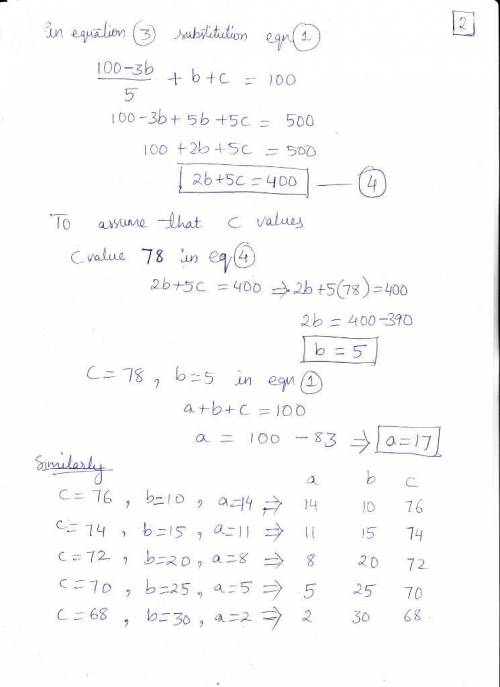 2
in equation ③ substitution eqn ①
(100-3b)/5 + b + c = 100
100-3b + 5b + 5c = 500
100 + 2b + 5c = 500
2b+5c = 400 — ④
To assume that C values
C value 78 in eq ④
2b+5c = 400 ⇒ 2b+5(78)=400
2b = 400-390
b = 5
C = 78, b=5 in eqn ①
a+b+c=100
a = 100 - 83 ⇒ a=17
Similarly a b c
C= 76, b=10, a=14 ⇒ 14 10 76
C= 74, b=15, a=11 ⇒ 11 15 74
C= 72, b=20, a=8 ⇒ 8 20 72
C= 70, b=25, a=5 ⇒ 5 25 70
C= 68, b=30, a=2 ⇒ 2 30 68